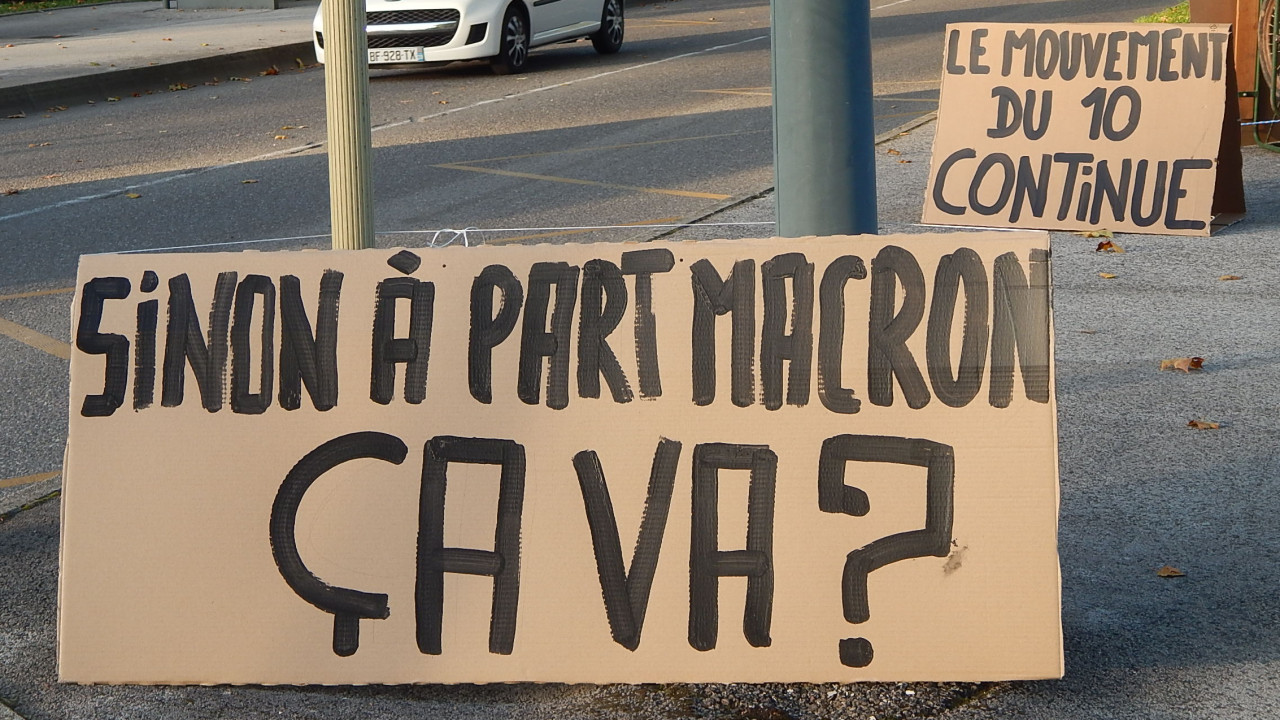 BF 928 TX
LE MOUVEMENT
DU 10
CONTiNUE
SiNON À PART MACRON
ÇA VA ?